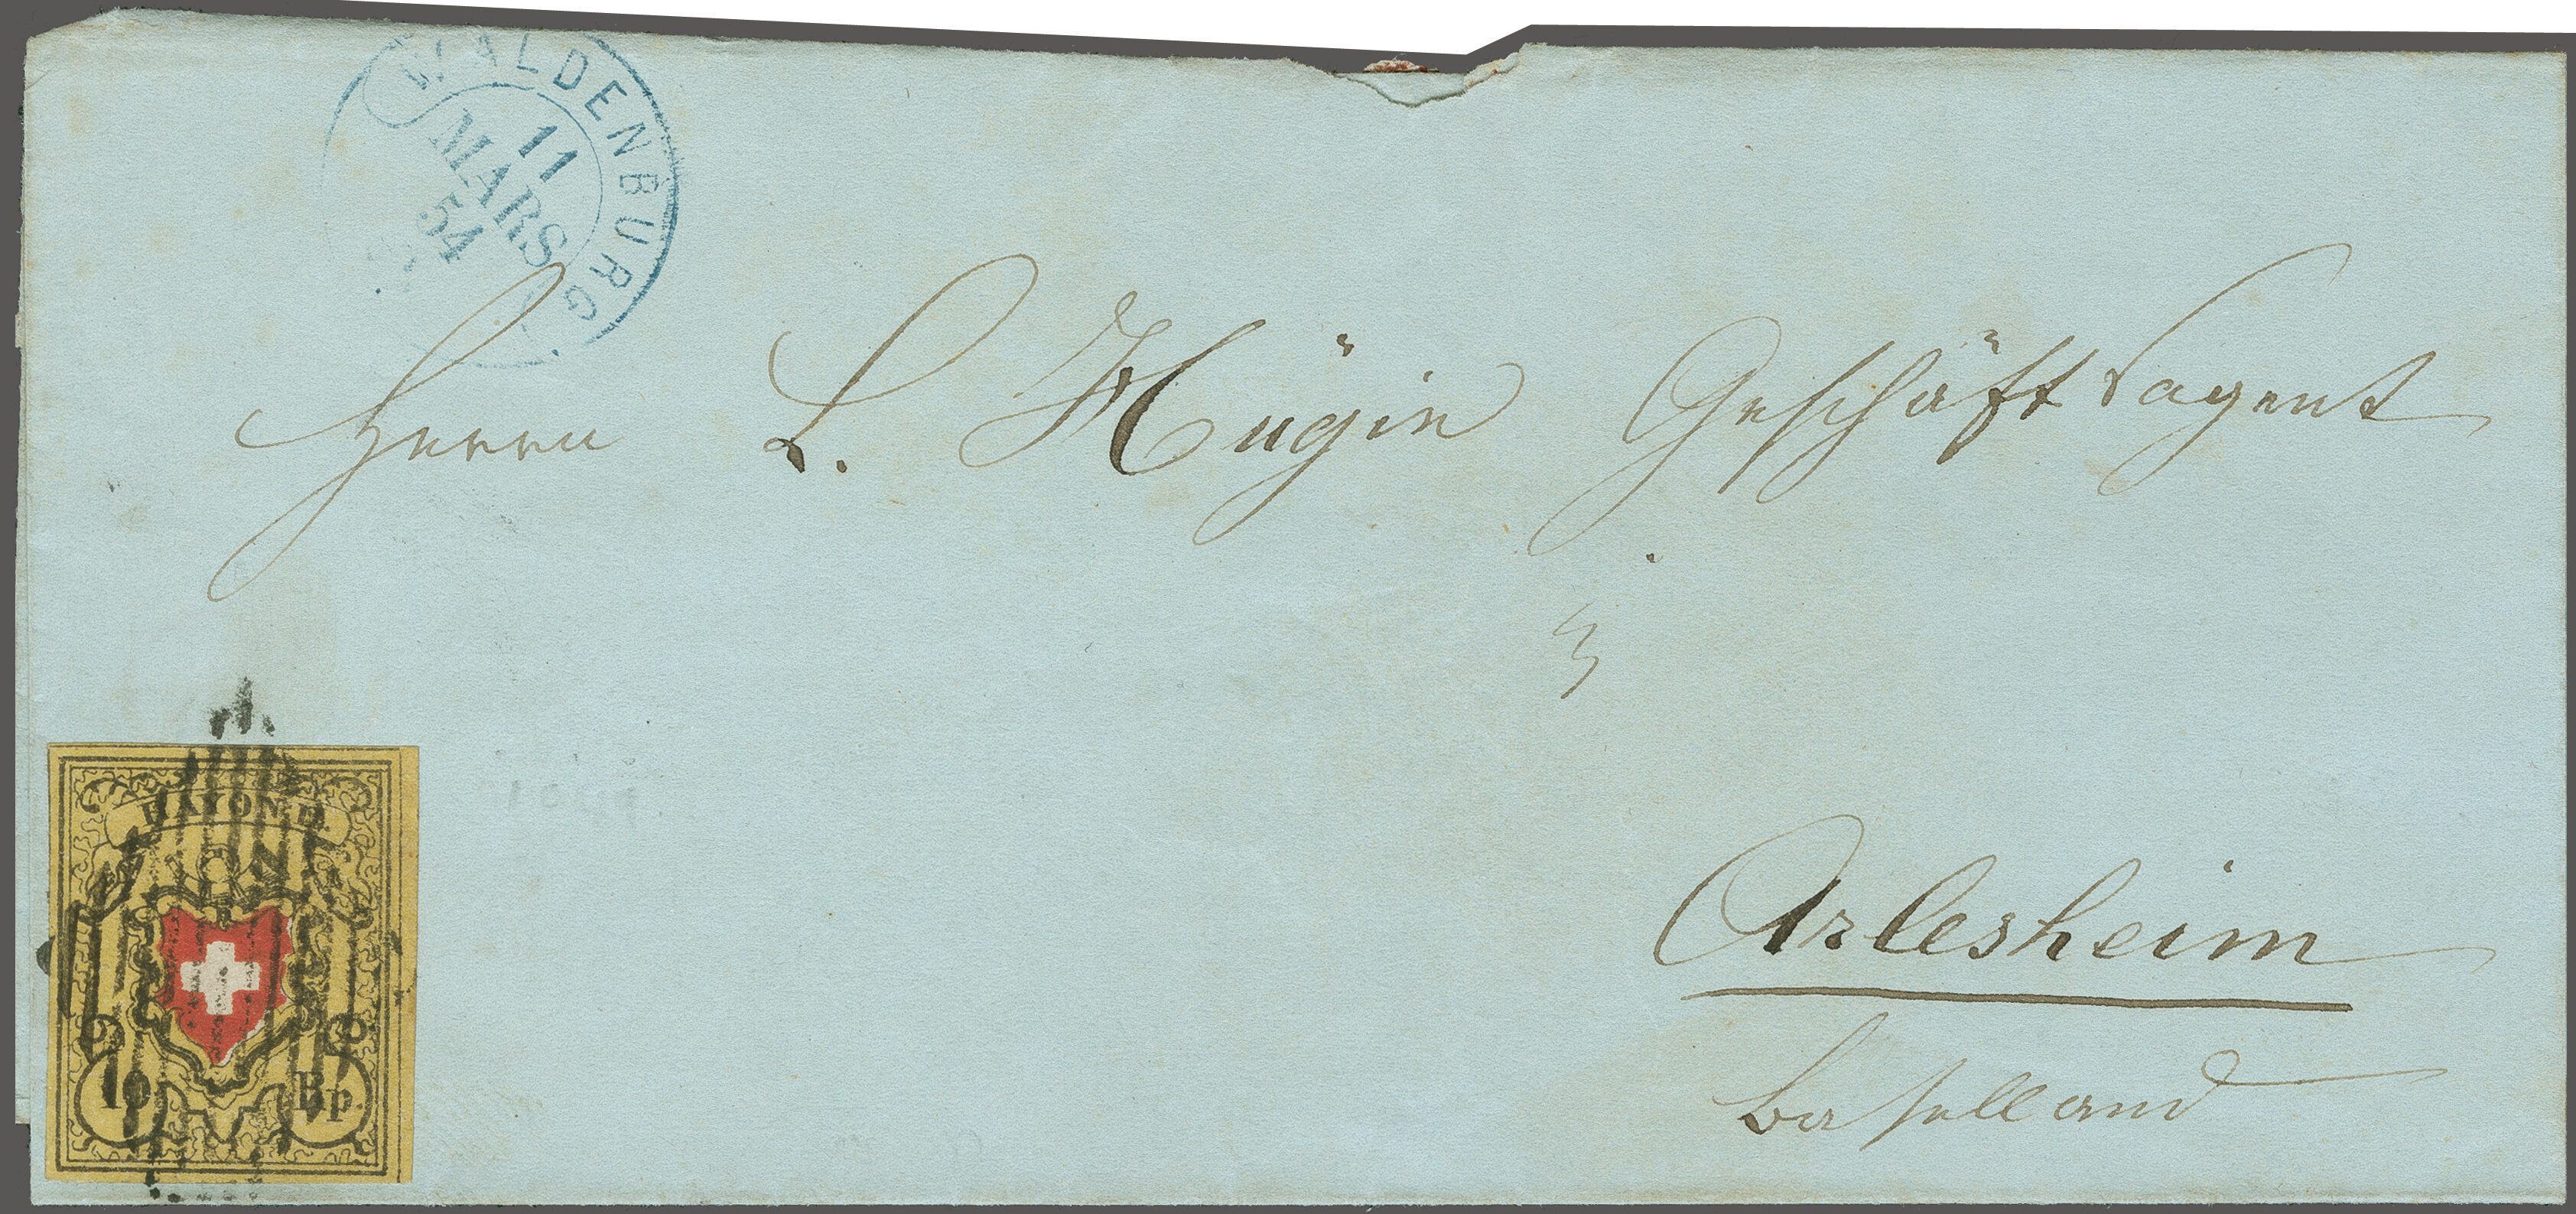 WALDENBURG
11
MARS
54
Herrn L. Hügin Geschäftsagent
RAYON. II.
10 Rp.
Arlesheim
Baselland